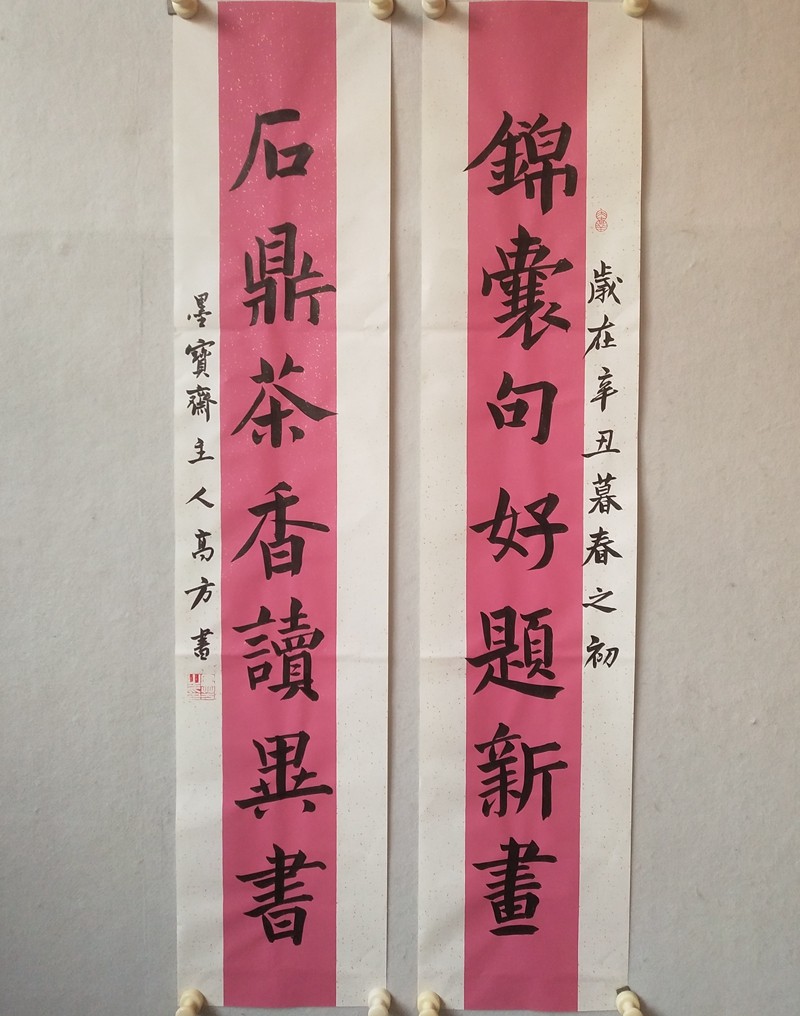 歲在辛丑暮春之初
錦囊句好題新畫
石鼎茶香讀異書
墨寶齋主人高方書